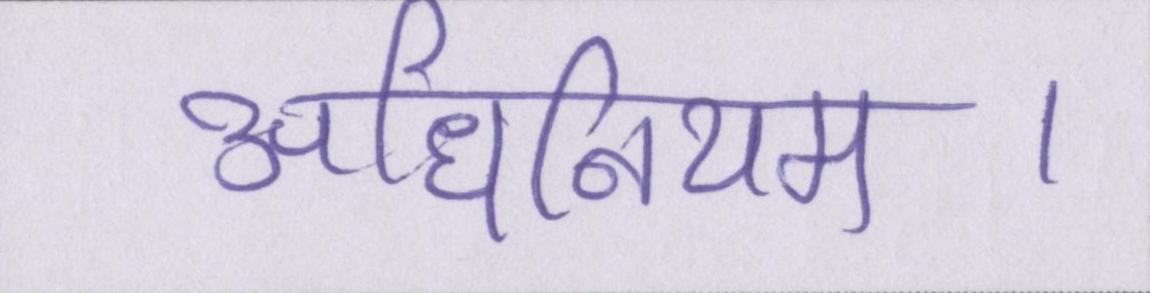 अधिनियम ।